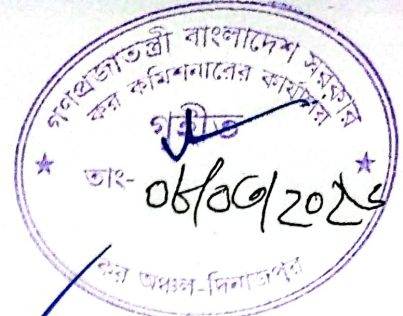 গণপ্রজাতন্ত্রী বাংলাদেশ সরকার
কর কমিশনারের কার্যালয়
গৃহীত
তাং-
কর অঞ্চল-দিনাজপুর